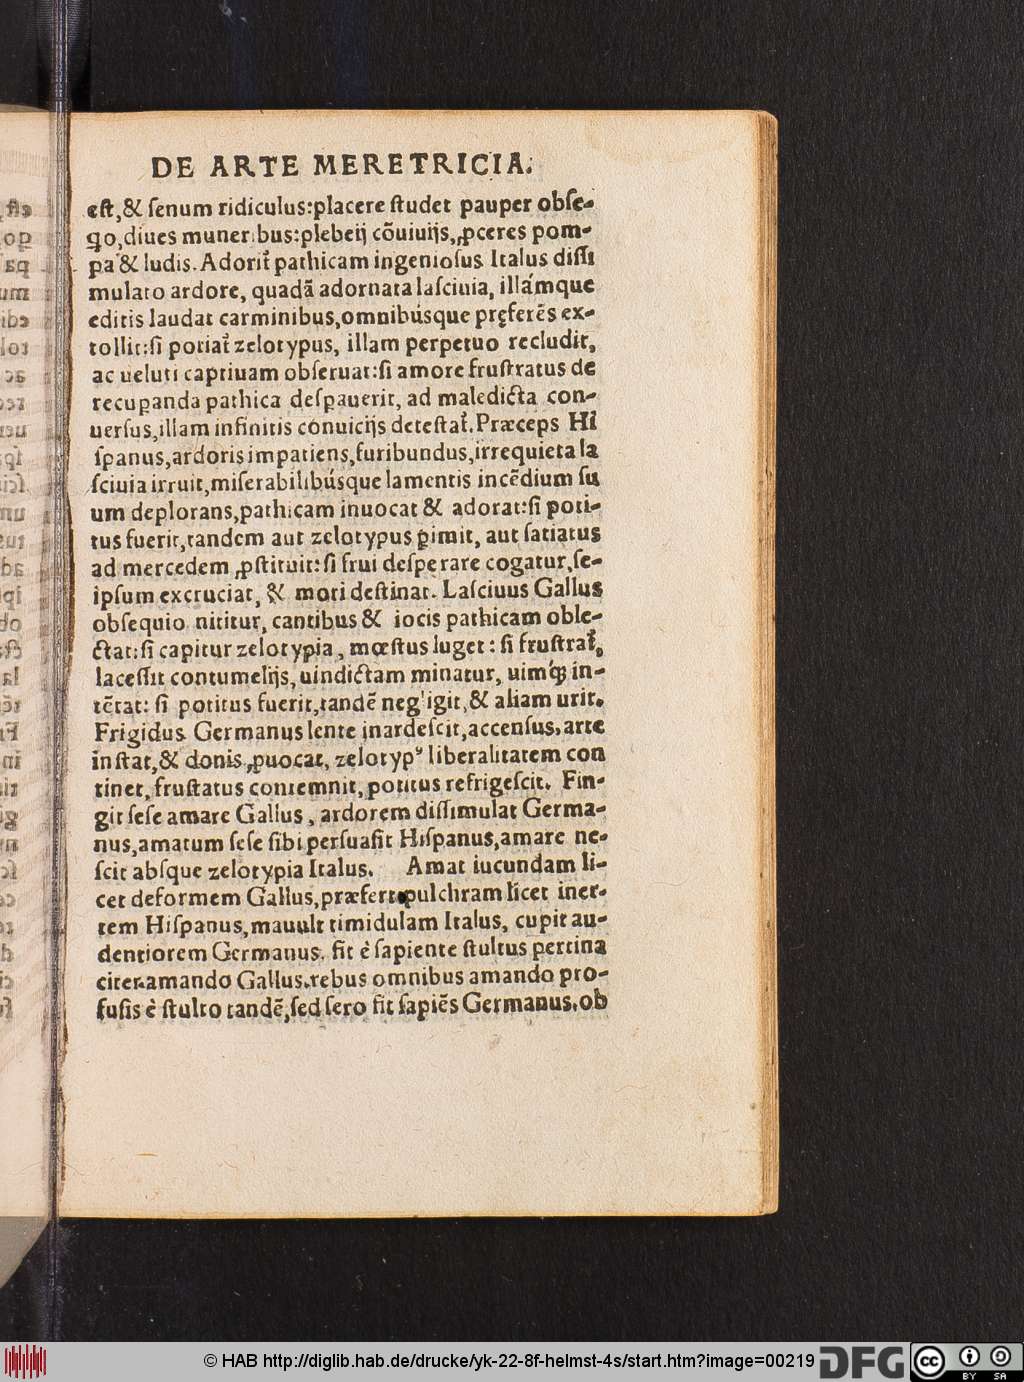 DE ARTE MERETRICIA.
est, & senum ridiculus: placere studet pauper obse-
q̃o, diues muneribus: plebeij cõuiuijs, ꝓceres pom-
pa & ludis. Adorit̃ pathicam ingeniosus Italus dissi
mulato ardore, quadã adornata lasciuia, illámque
editis laudat carminibus, omnibúsque pręferẽs ex-
tollit: si potiat̃ zelotypus, illam perpetuo recludit,
ac ueluti captiuam obseruat: si amore frustratus de
recupanda pathica despauerit, ad maledicta con-
uersus, illam infinitis conuicijs detestat̃. Præceps Hi
spanus, ardoris impatiens, furibundus, irrequieta la
sciuia irruit, miserabilibúsque lamentis incẽdium su
um deplorans, pathicam inuocat & adorat: si poti-
tus fuerit, tandem aut zelotypus ꝑimit, aut satiatus
ad mercedem ꝓstituit: si frui desperare cogatur, se-
ipsum excruciat, & mori destinat. Lasciuus Gallus
obsequio nititur, cantibus & iocis pathicam oble-
ctat: si capitur zelotypia, mœstus luget: si frustrat̃,
lacessit contumelijs, uindictam minatur, uimq́; in-
tẽtat: si potitus fuerit, tandẽ negligit, & aliam urit.
Frigidus Germanus lente inardescit, accensus, arte
instat, & donis ꝓuocat, zelotypꝰ liberalitatem con
tinet, frustatus contemnit, potitus refrigescit. Fin-
git sese amare Gallus, ardorem dissimulat Germa-
nus, amatum sese sibi persuasit Hispanus, amare ne-
scit absque zelotypia Italus. Amat iucundam li-
cet deformem Gallus, præfert pulchram licet iner-
tem Hispanus, mauult timidulam Italus, cupit au-
dentiorem Germanus. fit è sapiente stultus pertina
citer amando Gallus. rebus omnibus amando pro-
fusis è stulto tandẽ, sed sero fit sapiẽs Germanus. ob
© HAB http://diglib.hab.de/drucke/yk-22-8f-helmst-4s/start.htm?image=00219
DFG
cc
BY SA